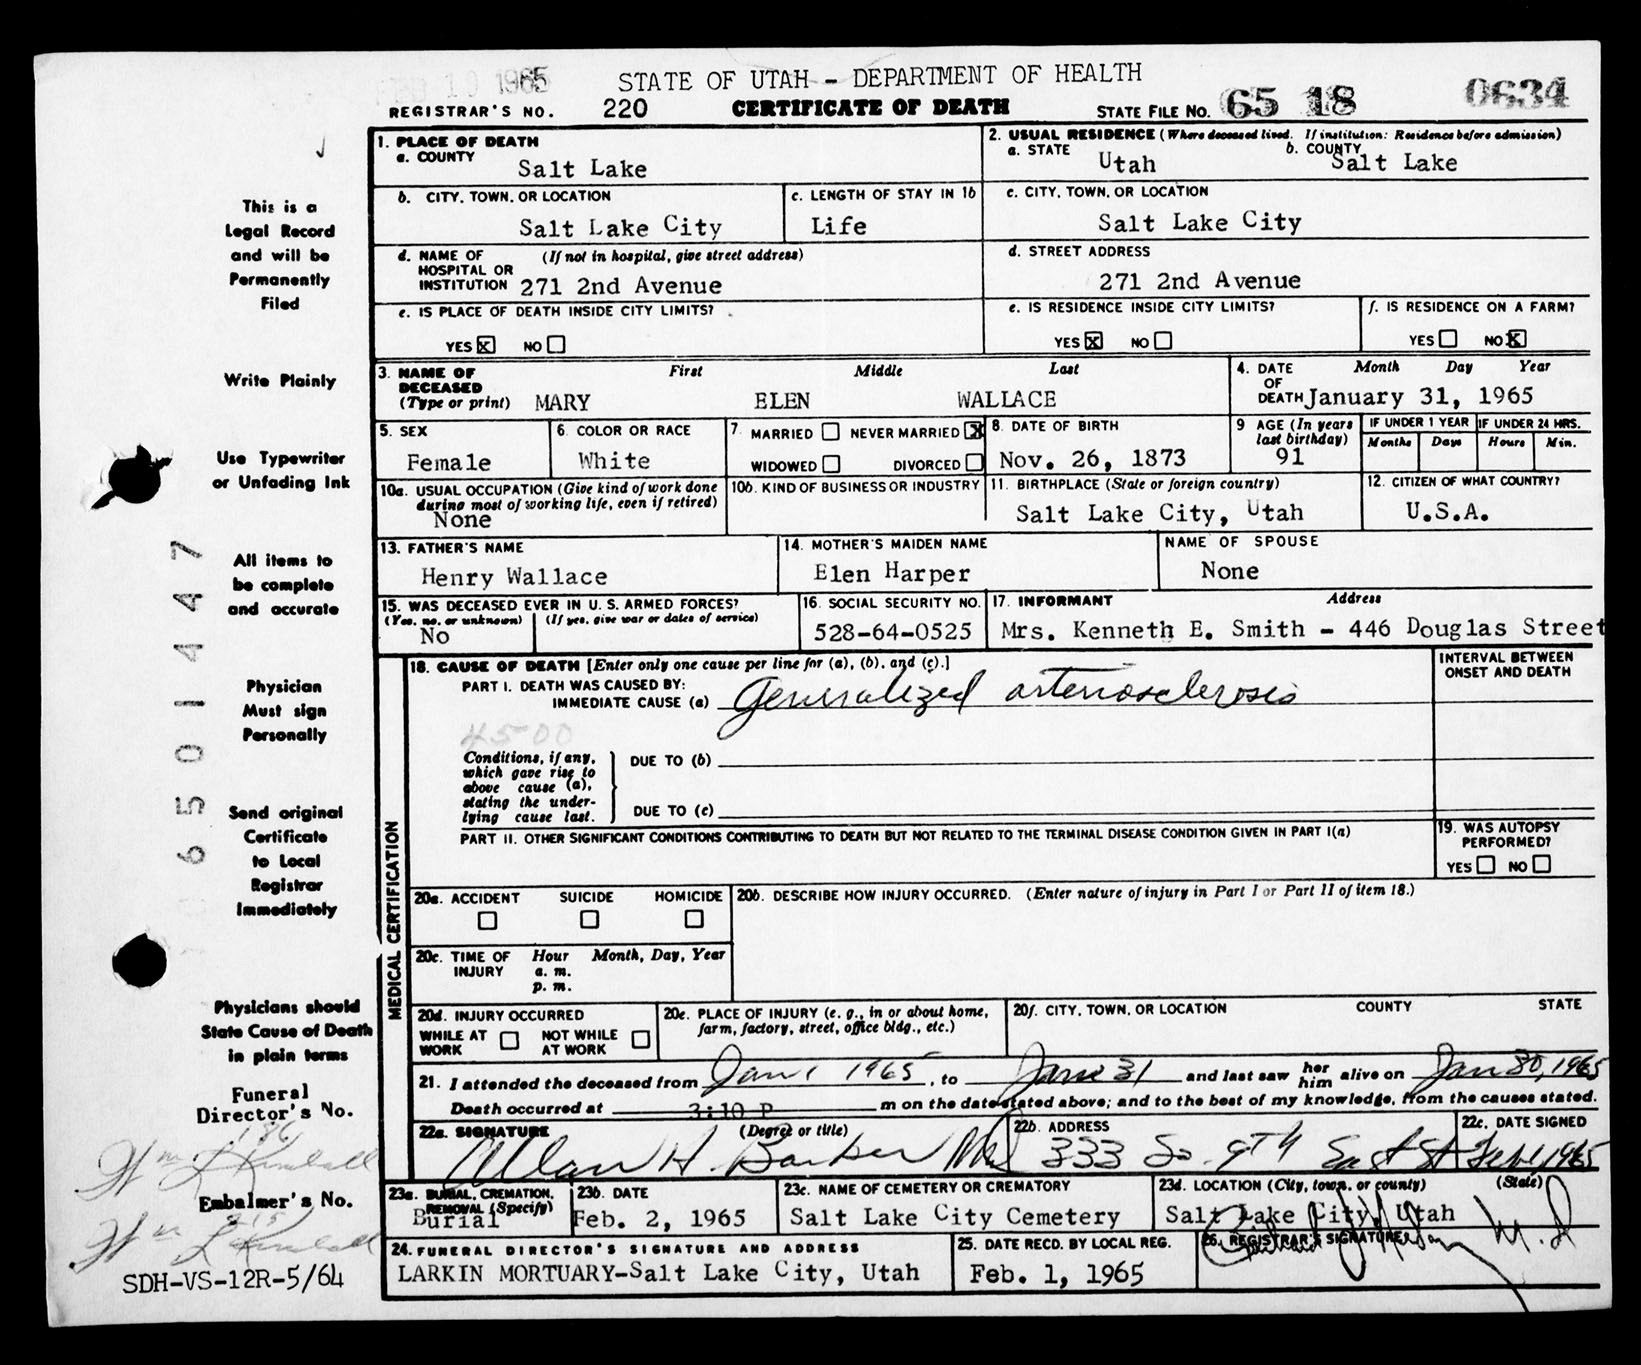 FEB 10 1965
STATE OF UTAH - DEPARTMENT OF HEALTH
REGISTRAR'S NO. 220 CERTIFICATE OF DEATH STATE FILE NO. 65 18 0634
1. PLACE OF DEATH
a. COUNTY
Salt Lake
2. USUAL RESIDENCE (Where deceased lived. If institution: Residence before admission)
a. STATE Utah b. COUNTY Salt Lake
b. CITY, TOWN, OR LOCATION
Salt Lake City
c. LENGTH OF STAY IN 1b
Life
c. CITY, TOWN, OR LOCATION
Salt Lake City
d. NAME OF HOSPITAL OR INSTITUTION (If not in hospital, give street address)
271 2nd Avenue
d. STREET ADDRESS
271 2nd Avenue
e. IS PLACE OF DEATH INSIDE CITY LIMITS?
YES X NO
e. IS RESIDENCE INSIDE CITY LIMITS?
YES X NO
f. IS RESIDENCE ON A FARM?
YES NO X
3. NAME OF DECEASED (Type or print) First Middle Last
MARY ELEN WALLACE
4. DATE OF DEATH Month Day Year
January 31, 1965
5. SEX
Female
6. COLOR OR RACE
White
7. MARRIED NEVER MARRIED X
WIDOWED DIVORCED
8. DATE OF BIRTH
Nov. 26, 1873
9 AGE (In years last birthday)
91
IF UNDER 1 YEAR IF UNDER 24 HRS.
Months Days Hours Min.
10a. USUAL OCCUPATION (Give kind of work done during most of working life, even if retired)
None
10b. KIND OF BUSINESS OR INDUSTRY
11. BIRTHPLACE (State or foreign country)
Salt Lake City, Utah
12. CITIZEN OF WHAT COUNTRY?
U.S.A.
13. FATHER'S NAME
Henry Wallace
14. MOTHER'S MAIDEN NAME
Elen Harper
NAME OF SPOUSE
None
15. WAS DECEASED EVER IN U. S. ARMED FORCES?
(Yes, no, or unknown) (If yes, give war or dates of service)
No
16. SOCIAL SECURITY NO.
528-64-0525
17. INFORMANT Address
Mrs. Kenneth E. Smith - 446 Douglas Street
MEDICAL CERTIFICATION
18. CAUSE OF DEATH [Enter only one cause per line for (a), (b), and (c).]
INTERVAL BETWEEN ONSET AND DEATH
PART I. DEATH WAS CAUSED BY:
IMMEDIATE CAUSE (a) Generalized arteriosclerosis
4500
Conditions, if any, which gave rise to above cause (a), stating the underlying cause last.
DUE TO (b)
DUE TO (c)
PART II. OTHER SIGNIFICANT CONDITIONS CONTRIBUTING TO DEATH BUT NOT RELATED TO THE TERMINAL DISEASE CONDITION GIVEN IN PART I(a)
19. WAS AUTOPSY PERFORMED?
YES NO
20a. ACCIDENT SUICIDE HOMICIDE
20b. DESCRIBE HOW INJURY OCCURRED. (Enter nature of injury in Part I or Part II of item 18.)
20c. TIME OF INJURY Hour Month, Day, Year
a. m.
p. m.
20d. INJURY OCCURRED
WHILE AT WORK NOT WHILE AT WORK
20e. PLACE OF INJURY (e. g., in or about home, farm, factory, street, office bldg., etc.)
20f. CITY, TOWN, OR LOCATION COUNTY STATE
21. I attended the deceased from Jan 1 1965, to Jan 31 and last saw her him alive on Jan 30, 1965
Death occurred at 3:10 P m on the date stated above; and to the best of my knowledge, from the causes stated.
22a. SIGNATURE (Degree or title)
Allan H. Barker MD
22b. ADDRESS
333 So. 9th East St
22c. DATE SIGNED
Feb 1, 1965
23a. BURIAL, CREMATION, REMOVAL (Specify)
Burial
23b. DATE
Feb. 2, 1965
23c. NAME OF CEMETERY OR CREMATORY
Salt Lake City Cemetery
23d. LOCATION (City, town, or county) (State)
Salt Lake City, Utah
24. FUNERAL DIRECTOR'S SIGNATURE AND ADDRESS
LARKIN MORTUARY-Salt Lake City, Utah
25. DATE RECD. BY LOCAL REG.
Feb. 1, 1965
26. REGISTRAR'S SIGNATURE
M.D
This is a
Legal Record
and will be
Permanently
Filed
Write Plainly
Use Typewriter
or Unfading Ink
All items to
be complete
and accurate
Physician
Must sign
Personally
Send original
Certificate
to Local
Registrar
Immediately
Physicians should
State Cause of Death
in plain terms
Funeral
Director's No.
186
Embalmer's No.
SDH-VS-12R-5/64
06501447